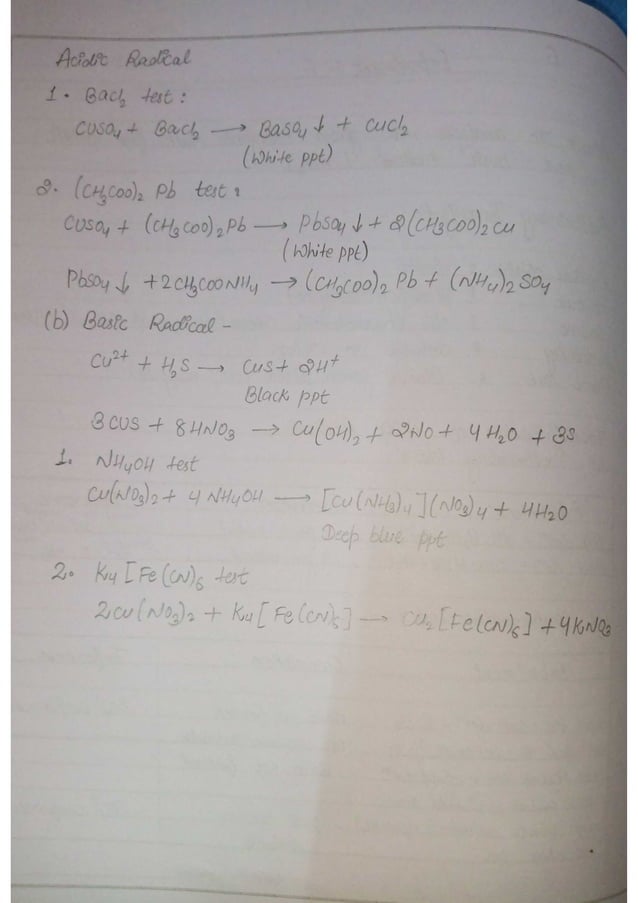 Acidic Radical
1. BaCl₂ test:
CuSO₄ + BaCl₂ ⟶ BaSO₄↓ + CuCl₂
(White ppt)
2. (CH₃COO)₂ Pb test:
CuSO₄ + (CH₃COO)₂Pb ⟶ PbSO₄↓ + 2(CH₃COO)₂Cu
(White ppt)
PbSO₄↓ + 2CH₃COONH₄ ⟶ (CH₃COO)₂ Pb + (NH₄)₂SO₄
(b) Basic Radical -
Cu²⁺ + H₂S ⟶ CuS + 2H⁺
Black ppt
3CuS + 8HNO₃ ⟶ Cu(OH)₂ + 2NO + 4H₂O + 3S
1. NH₄OH test
Cu(NO₃)₂ + 4NH₄OH ⟶ [Cu(NH₃)₄](NO₃)₄ + 4H₂O
Deep blue ppt
2. K₄[Fe(CN)₆ test
2Cu(NO₃)₂ + K₄[Fe(CN)₆] ⟶ Cu₂[Fe(CN)₆] + 4KNO₃